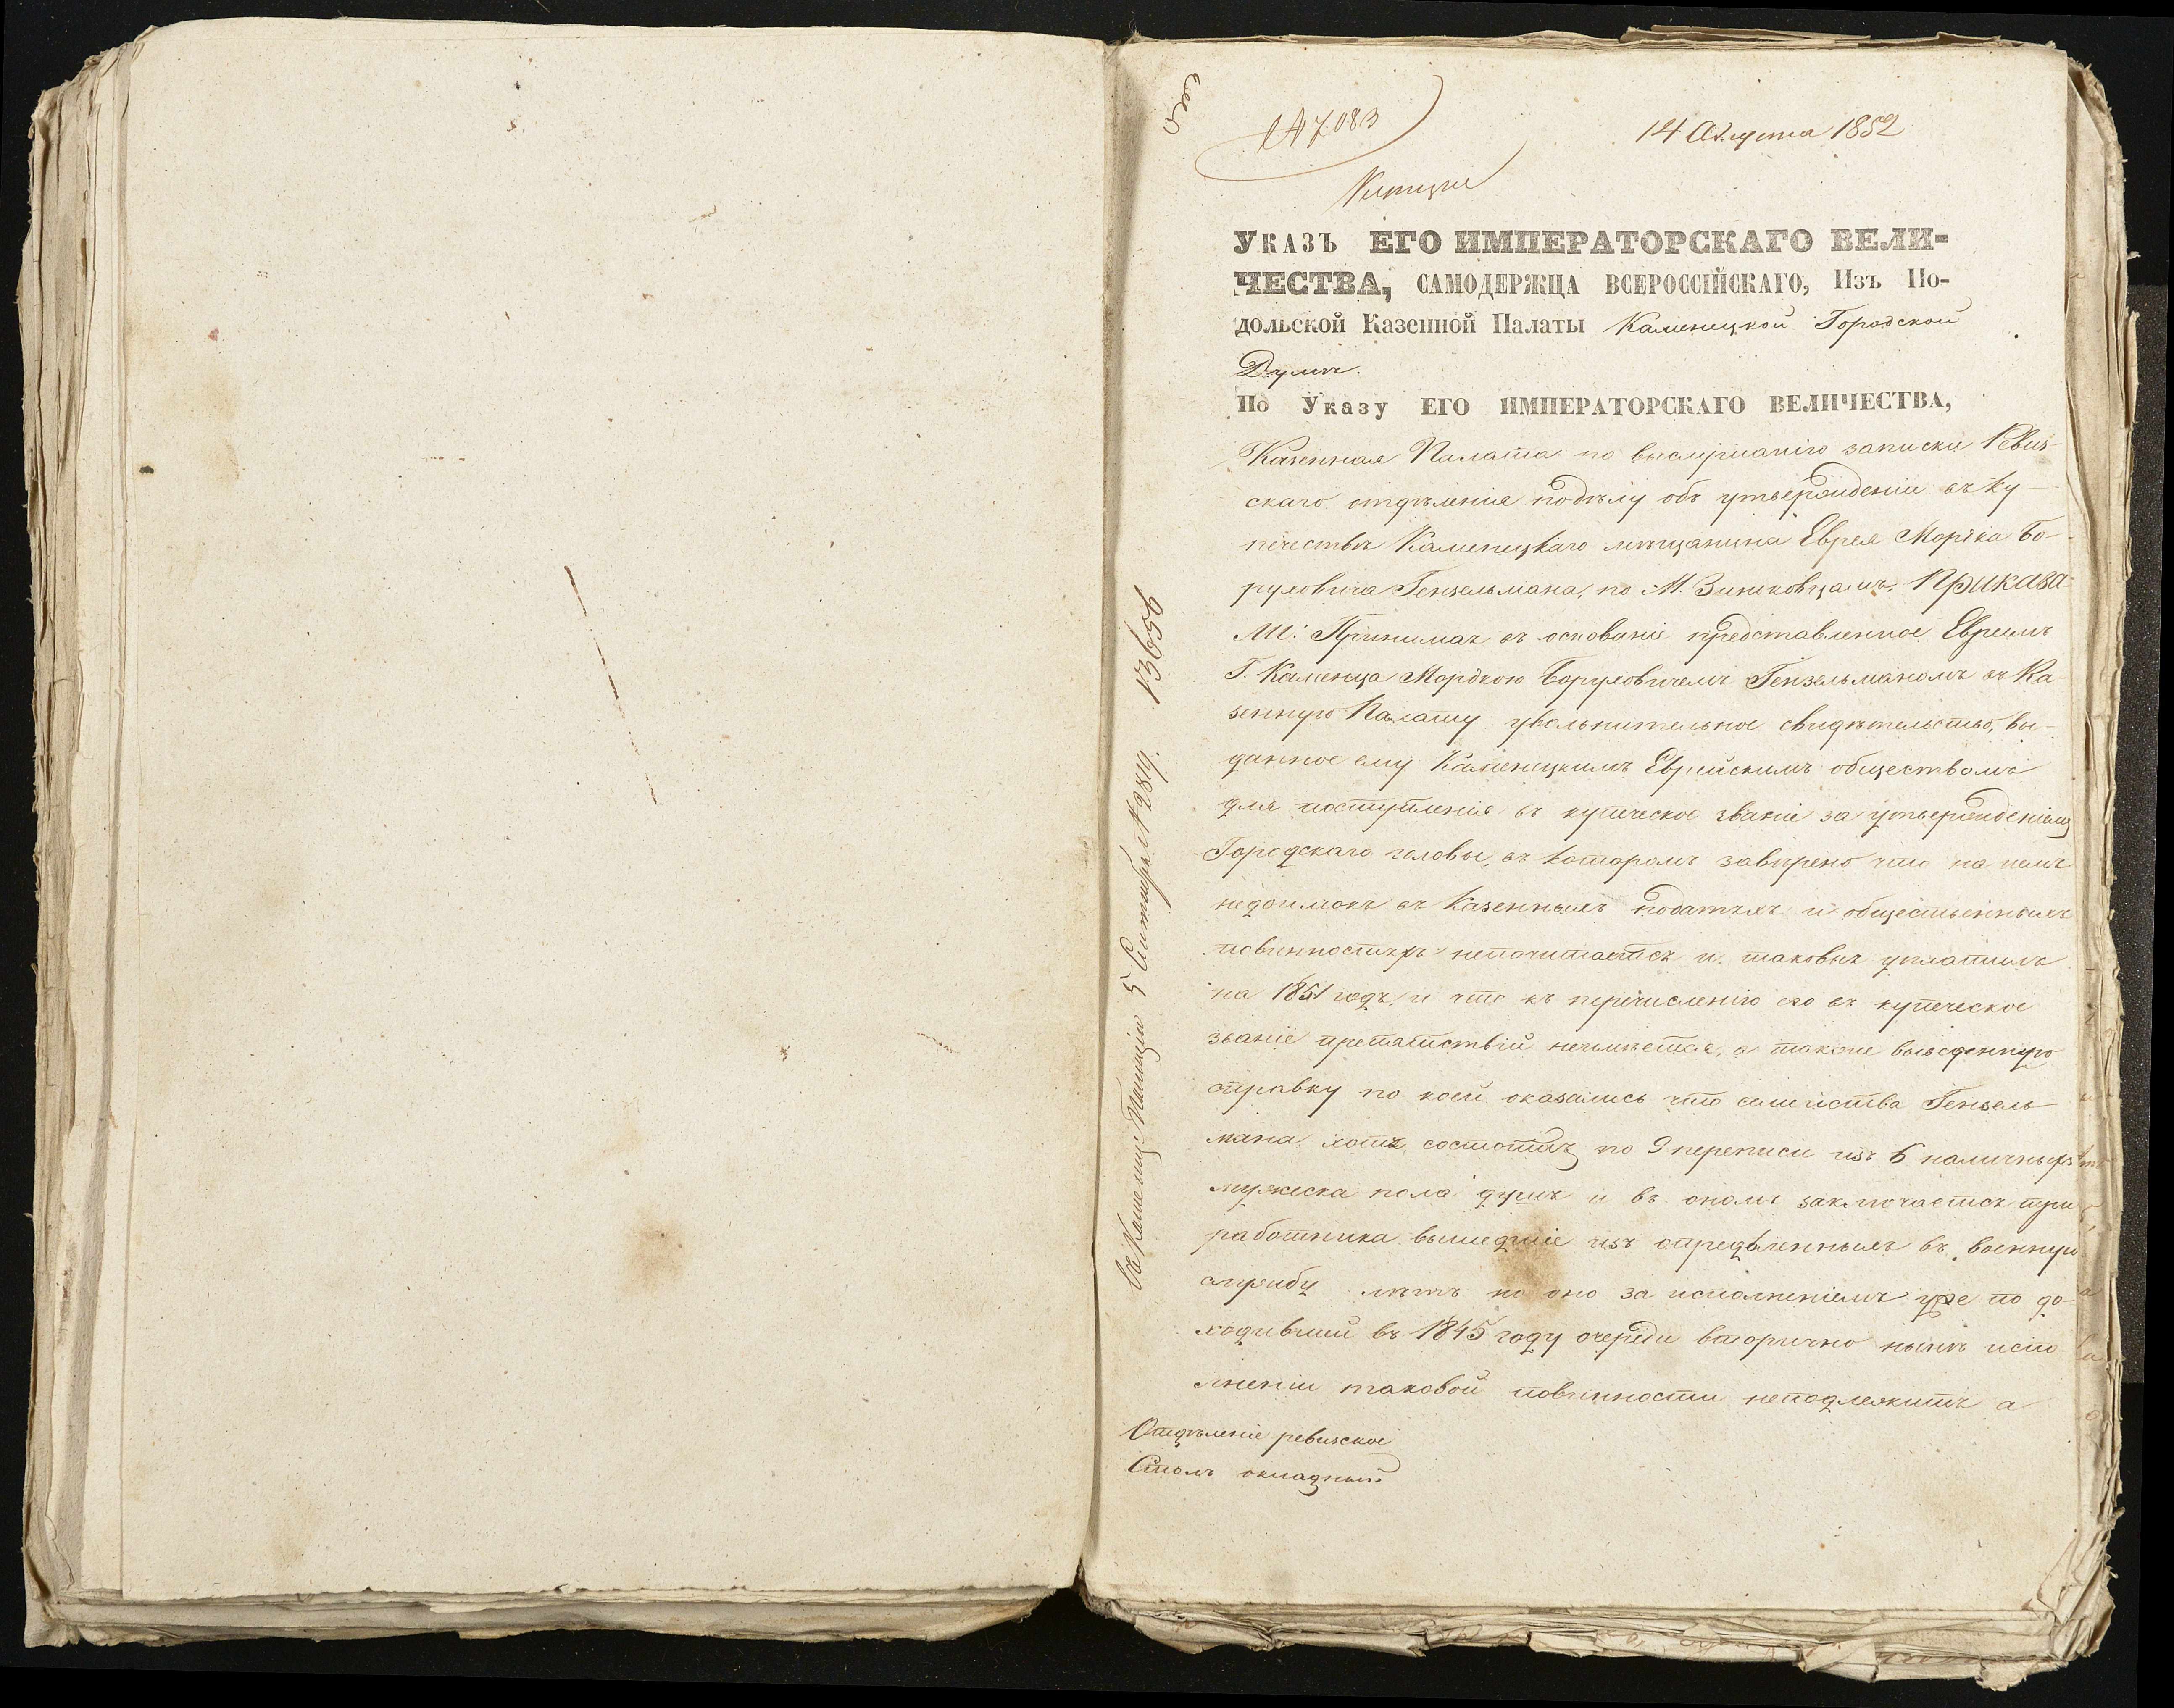 14 Августа 1852
УКАЗЪ ЕГО ИМПЕРАТОРСКАГО ВЕЛИ-
ЧЕСТВА, САМОДЕРЖЦА ВСЕРОССІЙСКАГО, Изъ По-
дольской Казенной Палаты Каменецкой Городской
Думѣ.
По Указу ЕГО ИМПЕРАТОРСКАГО ВЕЛИЧЕСТВА,
Казенная Палата по выслушанію записки Ревиз-
скаго отдѣленія подѣлу объ утвержденіи въ ку-
печествѣ Каменецкаго мѣщанина Еврея Мордка Бо-
руховича Гензельмана, по М. Зиньковцамъ, Приказа-
ли: Принимая въ основаніе представленное Евреемъ
Г. Каменца Мордкою Боруховичемъ Гензельманомъ въ Ка-
зенную Палату увольнительное свидѣтельство, вы-
данное ему Каменецкимъ Еврейскимъ обществомъ
для поступленія въ купеческое званіе за утвержденіемъ
Городскаго головы, въ которомъ завѣрено что на немъ
недоимокъ въ казенныхъ податяхъ и общественныхъ
повинностяхъ непочитается и таковыя уплатилъ
на 1851 годъ, и что къ перечисленію его въ купеческое
званіе препятствій неимѣется, а также выведенную
справку по коей оказалось что семейства Гензель-
мана хотя состоитъ по 9 переписи изъ 6 наличныхъ
мужеска пола душъ и въ ономъ заключается три
работника вышедшіе изъ опредѣленныхъ въ военную
службу лѣтъ но оно за исполненіемъ уже по до-
ходившей въ 1845 году очереди вторично нынѣ испо-
лненіи таковой повинности неподлежитъ а
Отдѣленіе ревизское
Столъ окладный
5 Сентября № 2819. 13656